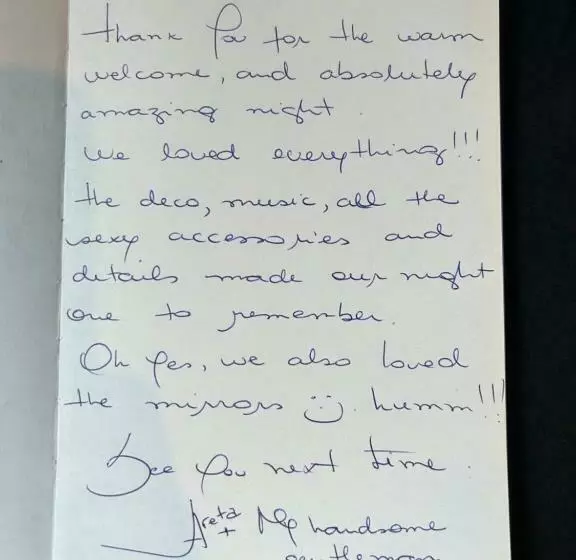 thank You for the warm
welcome, and absolutely
amazing night.
We loved everything!!!
the deco, music, all the
sexy accessories and
details made our night
one to remember.
Oh Yes, we also loved
the mirrors :). humm!!!
See You next time.
Areta + My handsome
gentleman